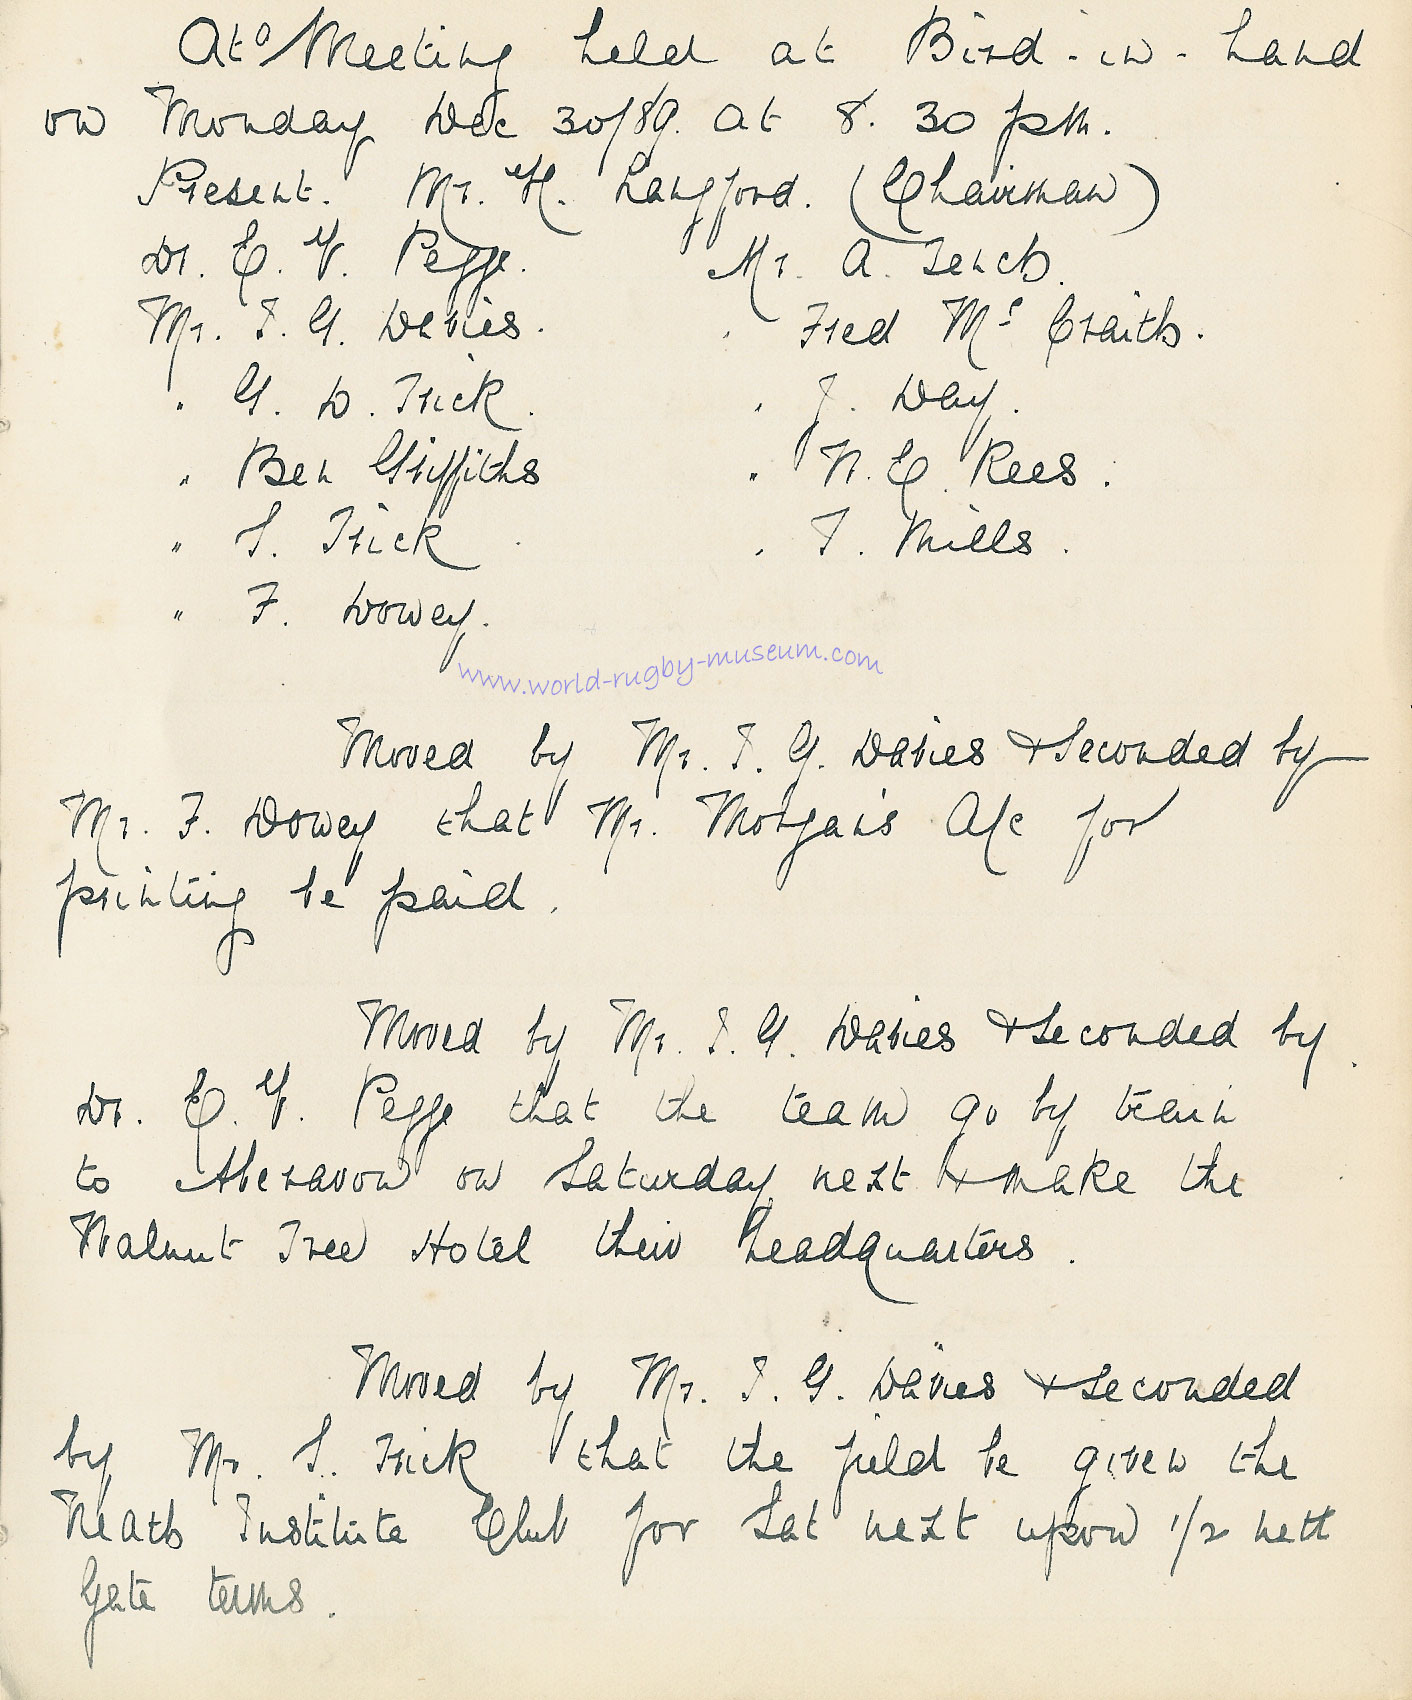 At a Meeting held at Bird-in-hand
on Monday Dec 30/89. at 8.30 pm.
Present. Mr. H. Langford. (Chairman)
Dr. E. V. Pegge. Mr. A. Tench.
Mr. T. G. Davies. " Fred Mc Craith.
" G. D. Trick. " J. Day.
" Ben Griffiths " W. E. Rees.
" S. Trick " T. Mills.
" F. Dowey.
www.world-rugby-museum.com
Moved by Mr. T. G. Davies & Seconded by
Mr. F. Dowey that Mr. Morgan's A/c for
printing be paid.
Moved by Mr. T. G. Davies & Seconded by
Dr. E. V. Pegge that the team go by train
to Aberavon on Saturday next & make the
Walnut Tree Hotel their headquarters.
Moved by Mr. T. G. Davies & Seconded
by Mr. S. Trick that the field be given the
Neath Institute Club for Sat next upon 1/2 nett
Gate terms.